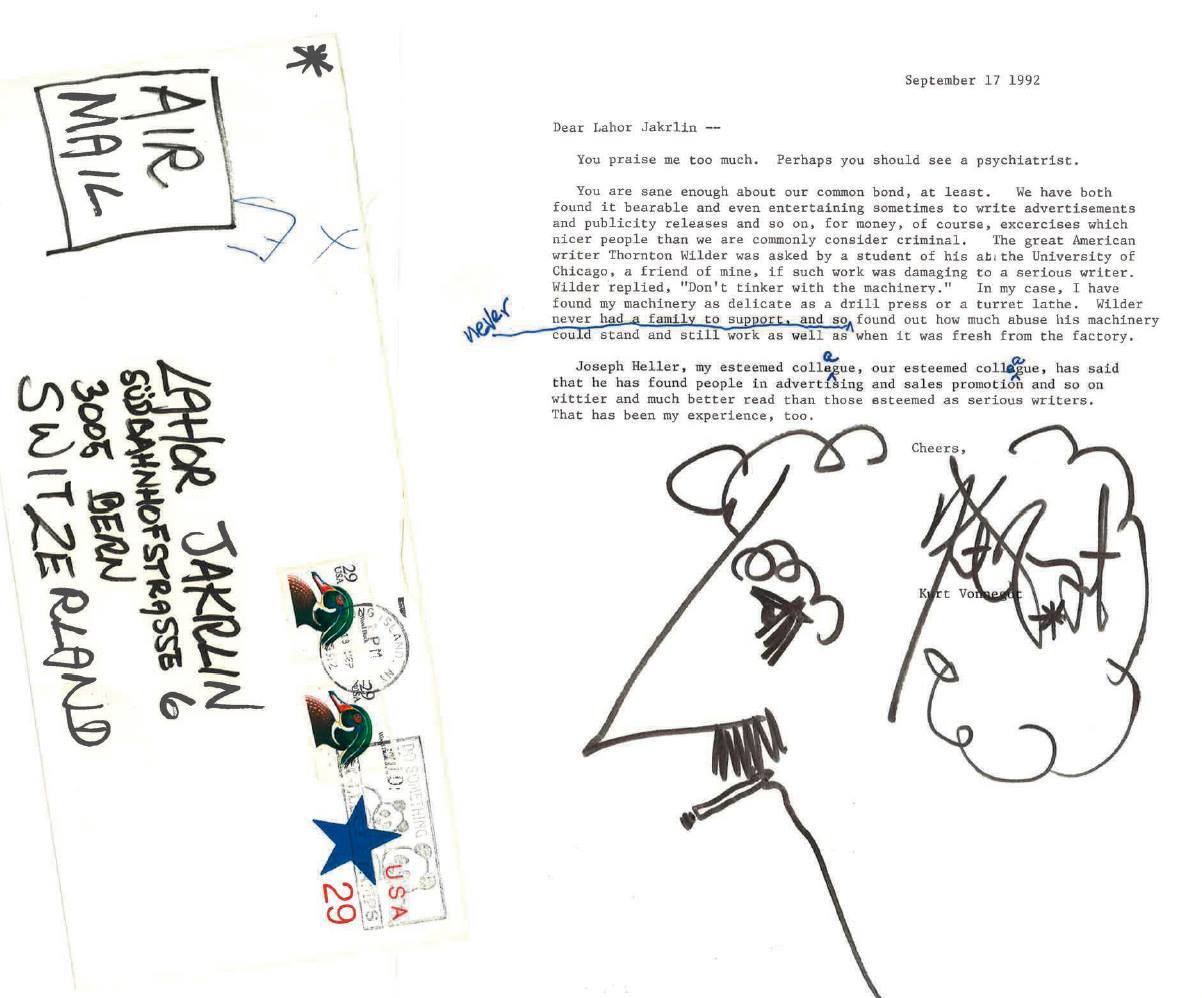 *
AIR
MAIL
X
LAHOR JAKRLIN
SÜDBAHNHOFSTRASSE 6
3005 BERN
SWITZERLAND
29
USA
NG ISLAND, NY
PM
SEP
29
USA
DO SOMETHING
USA
29
September 17 1992
Dear Lahor Jakrlin --
You praise me too much. Perhaps you should see a psychiatrist.
You are sane enough about our common bond, at least. We have both
found it bearable and even entertaining sometimes to write advertisements
and publicity releases and so on, for money, of course, excercises which
nicer people than we are commonly consider criminal. The great American
writer Thornton Wilder was asked by a student of his at the University of
Chicago, a friend of mine, if such work was damaging to a serious writer.
Wilder replied, "Don't tinker with the machinery." In my case, I have
found my machinery as delicate as a drill press or a turret lathe. Wilder
never had a family to support, and so found out how much abuse his machinery
never
could stand and still work as well as when it was fresh from the factory.
Joseph Heller, my esteemed colleague, our esteemed colleague, has said
that he has found people in advertising and sales promotion and so on
wittier and much better read than those esteemed as serious writers.
That has been my experience, too.
Cheers,
Kurt Vonnegut